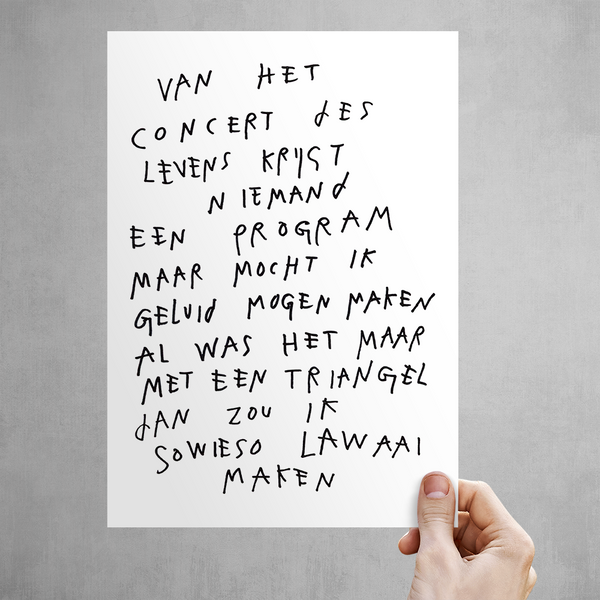 VAN HET
CONCERT dES
LEVENS KRIJGT
NIEMANd
EEN PROGRAM
MAAR MOCHT IK
GELUId MOGEN MAKEN
AL WAS HET MAAR
MET EEN TRIANGEL
dAN ZOU IK
SOWIESO LAWAAI
MAKEN